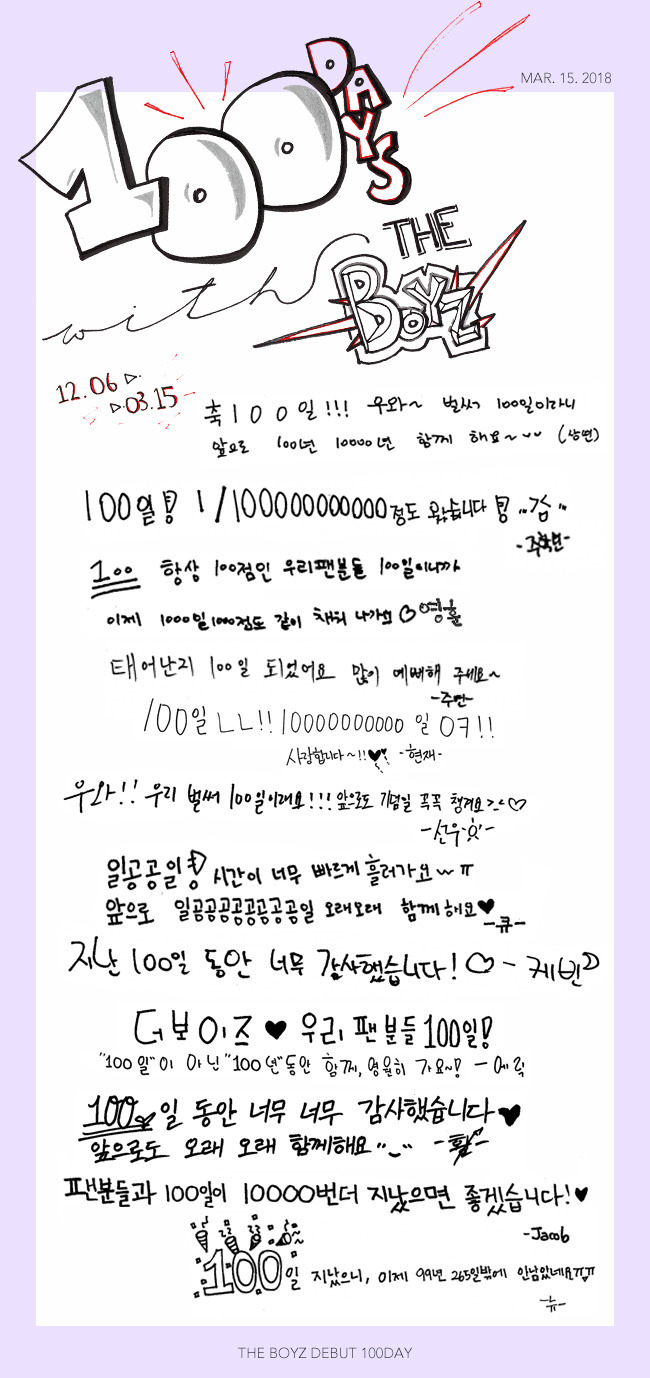 MAR. 15. 2018
100 DAYS
with THE BOYZ
12.06 ▷
▷ 03.15
축 1 0 0 일 !!! 우와~ 벌써 100일이라니
앞으로 100년 10000년 함께 해요~ᵕᵕ (상연)
100일! 1/100000000000정도 왔습니다! 
-주학년-
100 항상 100점인 우리팬분들 100일이니까
이제 1000일 1000점도 같이 채워 나가요♡영훈
태어난지 100일 되었어요 많이 예뻐해 주세요~
-주연-
100일 ㄴㄴ!! 10000000000 일 ㅇㅋ!!
사랑합니다~!!♥ -현재-
우와!! 우리 벌써 100일이래요!!! 앞으로도 기념일 꼭꼭 챙겨요>_<♡
-선우-
일공공일! 시간이 너무 빠르게 흘러가요~ㅠ
앞으로 일공공공공공공공공일 오래오래 함께해요♥
-큐-
지난 100일 동안 너무 감사했습니다! ♡ - 케빈
더보이즈 ♥ 우리 팬분들 100일!
"100일"이 아닌 "100년"동안 함께, 영원히 가요~! - 에릭
100일 동안 너무 너무 감사했습니다♥
앞으로도 오래 오래 함께해요 -활-
팬분들과 100일이 10000번더 지났으면 좋겠습니다!♥
-Jacob
100일 지났으니, 이제 99년 265일밖에 안남았네요ㅠㅠ
-뉴-
THE BOYZ DEBUT 100DAY